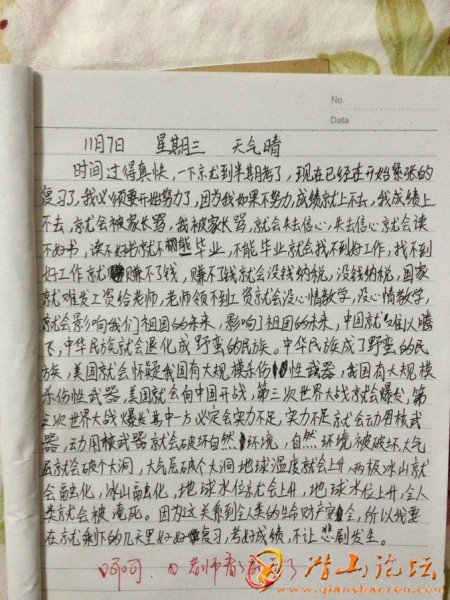 No.
Data
11月7日 星期三 天气晴
时间过得真快,一下京尤到半期考了,现在已经在开始紧张的
复习了,我必须要开始努力了,因为我如果不努力,成绩就上不去,我成绩上
不去,就会被家长骂,我被家长骂,就会失去信心,失去信心就会读
不好书,读不好书就不能毕业,不能毕业就会找不到好工作,找不到
好工作就赚不了钱,赚不了钱就会没钱纳税,没钱纳税,国家
就难发工资给老师,老师领不到工资就会没心情教学,没心情教学,
就会影响我们祖国的未来,影响了祖国的未来,中国就难以腾
飞,中华民族就会退化成野蛮的民族。中华民族成了野蛮的民
族,美国就会怀疑我国有大规模杀伤性武器,我国有大规模
杀伤性武器,美国就会向中国开战,第三次世界大战就会爆发,第
三次世界大战爆发其中一方必定会实力不足,实力不足就会动用核武
器,动用核武器就会破坏自然环境,自然环境被破坏,大气
层就会破个大洞,大气层破个大洞地球温度就会上升,两极冰山就
会融化,冰山融化,地球水位就会上升,地球水位上升,全人
类就会被淹死。因为这关系到全人类的生命财产安全,所以我要
在就剩下的几天里好好复习,考好成绩,不让悲剧发生。
呵呵,老师看了
潜山论坛
www.qianshanren.com